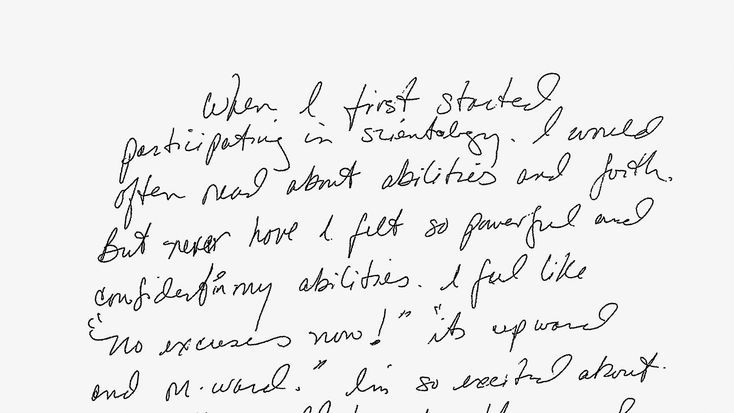 When I first started
participating in scientology. I would
often read about abilities and faith.
But never have I felt so powerful and
confident in my abilities. I feel like
"no excuses now!" "its upward
and on-ward." I'm so excited about